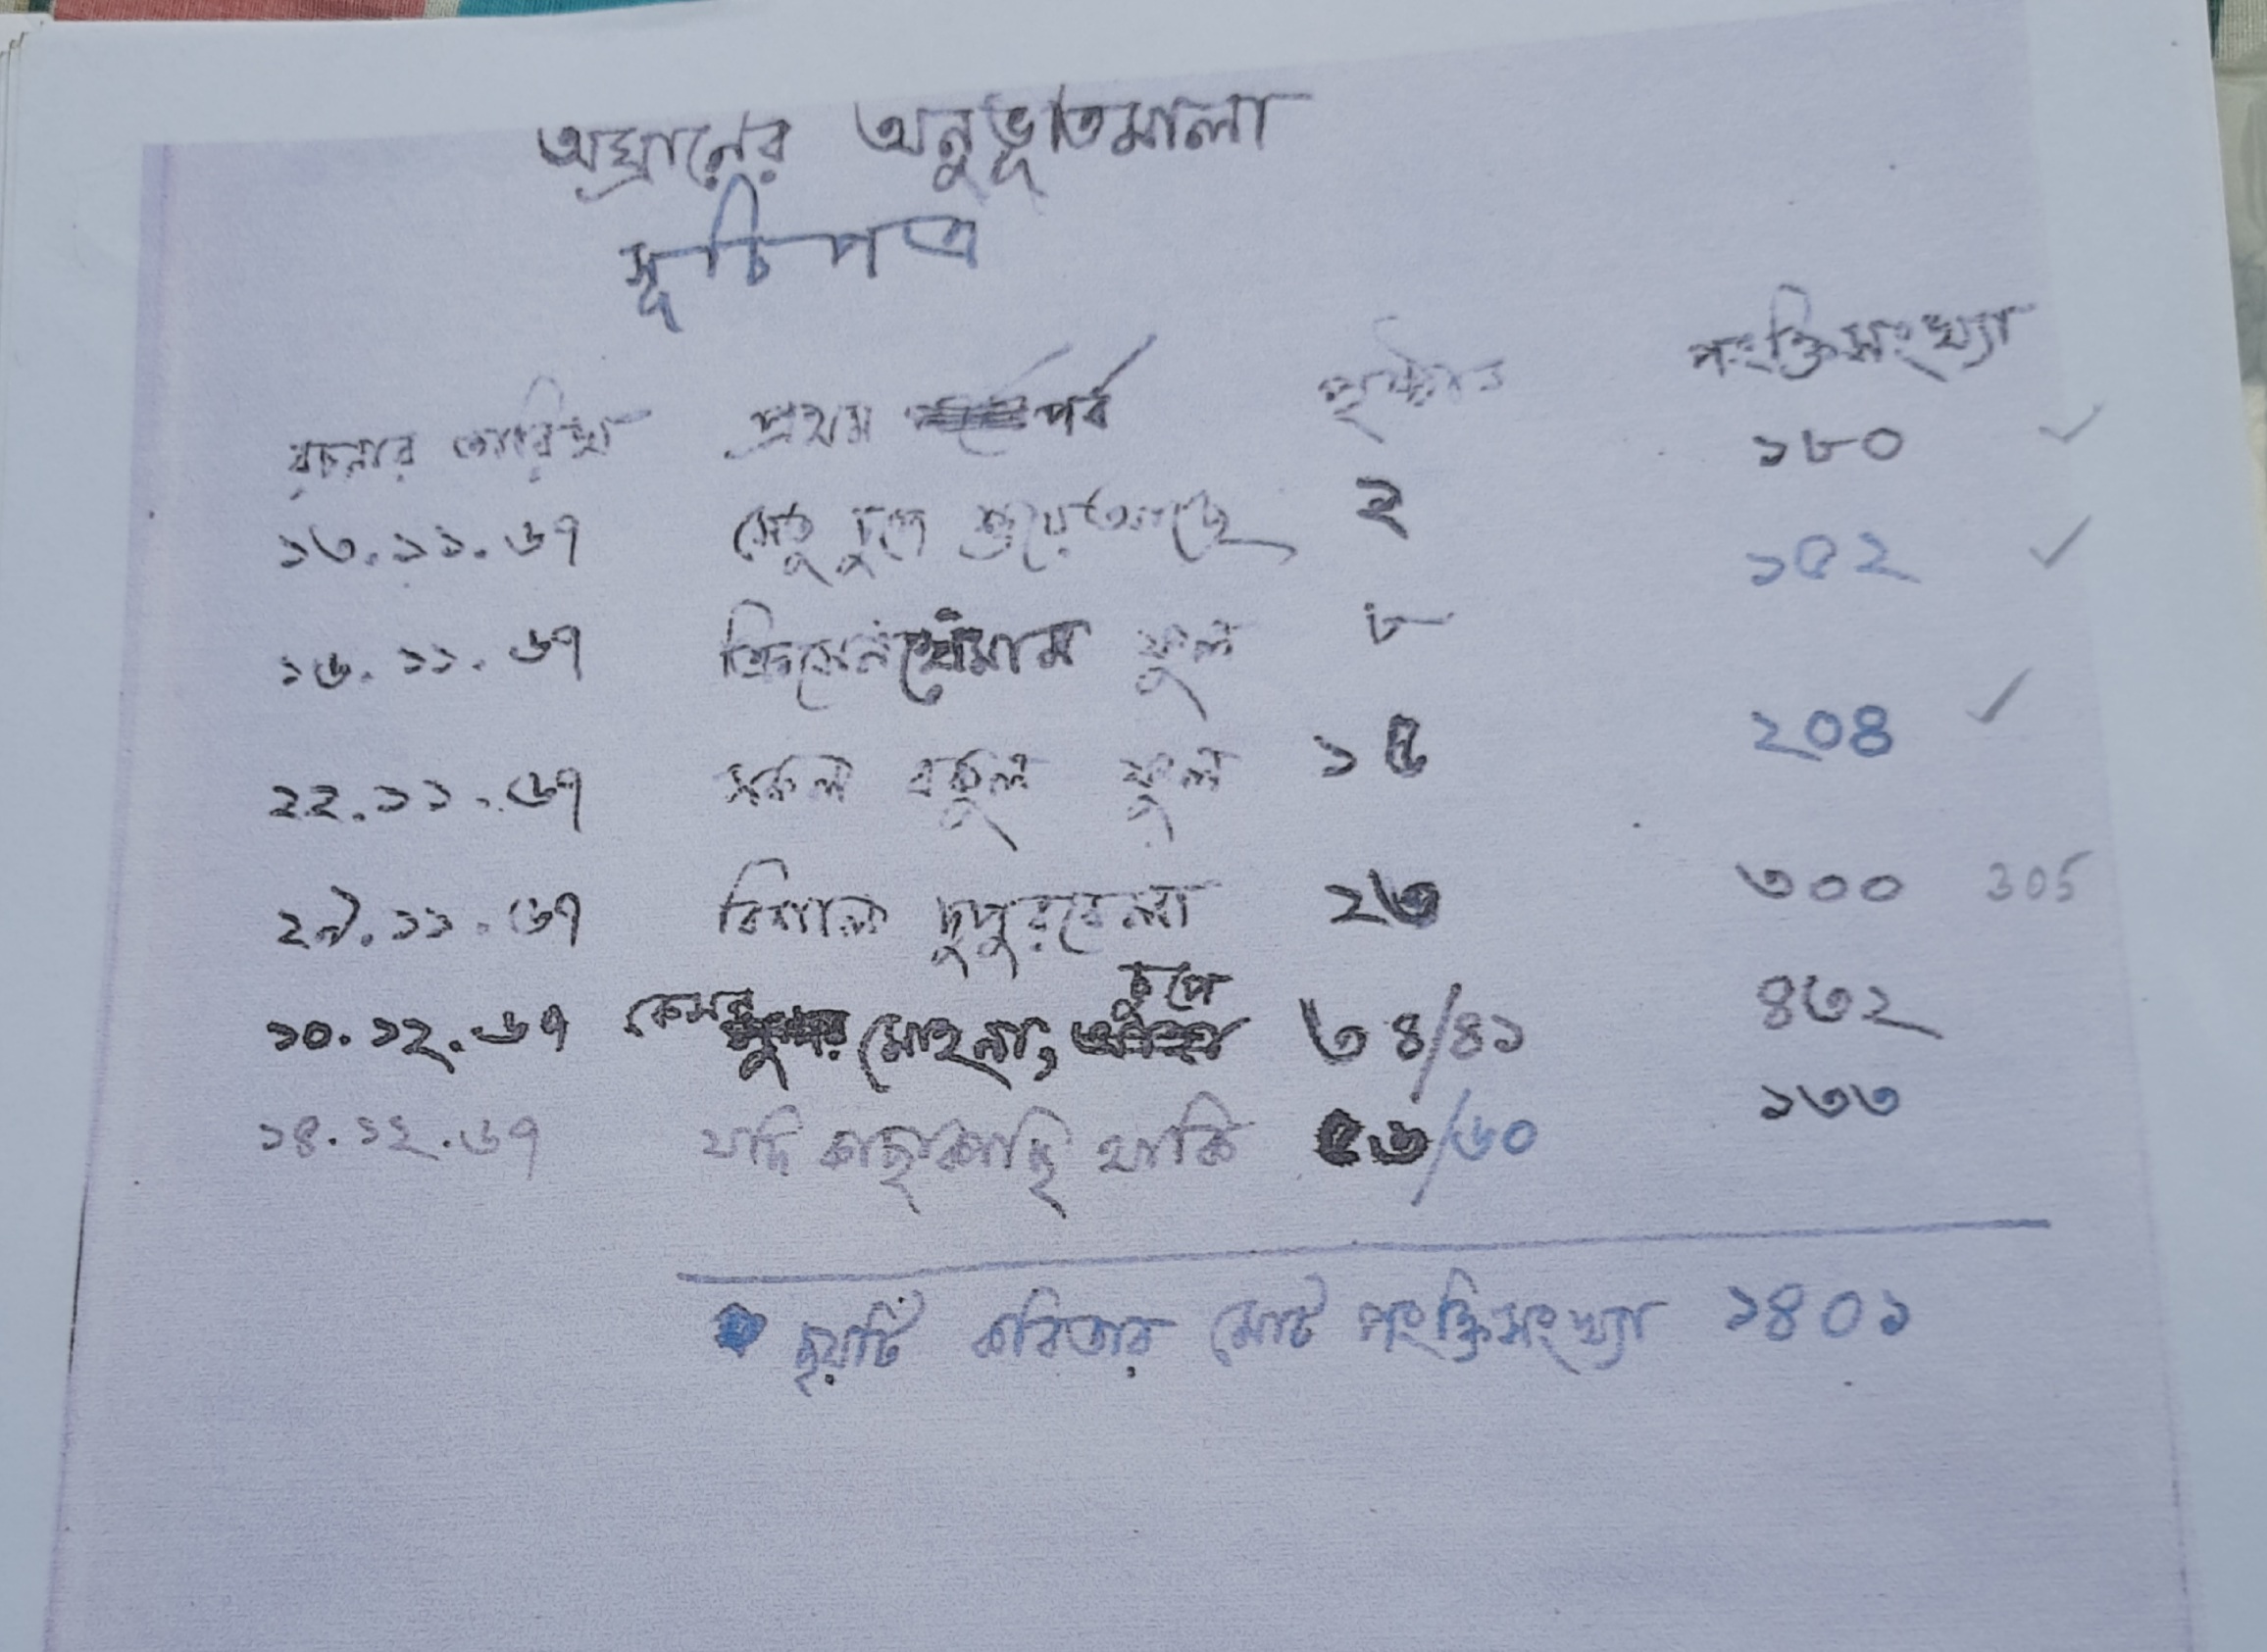 অঘ্রানের অনুভূতিমালা
সূচিপত্র
রচনার তারিখ প্রথম পর্ব পৃষ্ঠাঙ্ক পংক্তিসংখ্যা
১৩.১১.৬৭ সেতু চুপে শুয়ে আছে ২ ১৮০ ✓
১৬.১১.৬৭ ক্রিসেনথেমাম ফুল ৮ ১৫২ ✓
২২.১১.৬৭ সকল বকুল ফুল ১৫ ২০৪ ✓
২৭.১১.৬৭ বিশাল দুপুরবেলা ২৩ ৩০০ 305
১০.১২.৬৭ কেমন মোহনা, চুপে ৩৪/৪১ ৪৩২
১৪.১২.৬৭ যদি কাছাকাছি থাকি ৫৬/৬০ ১৩৩
ছয়টি কবিতার মোট পংক্তিসংখ্যা ১৪০১